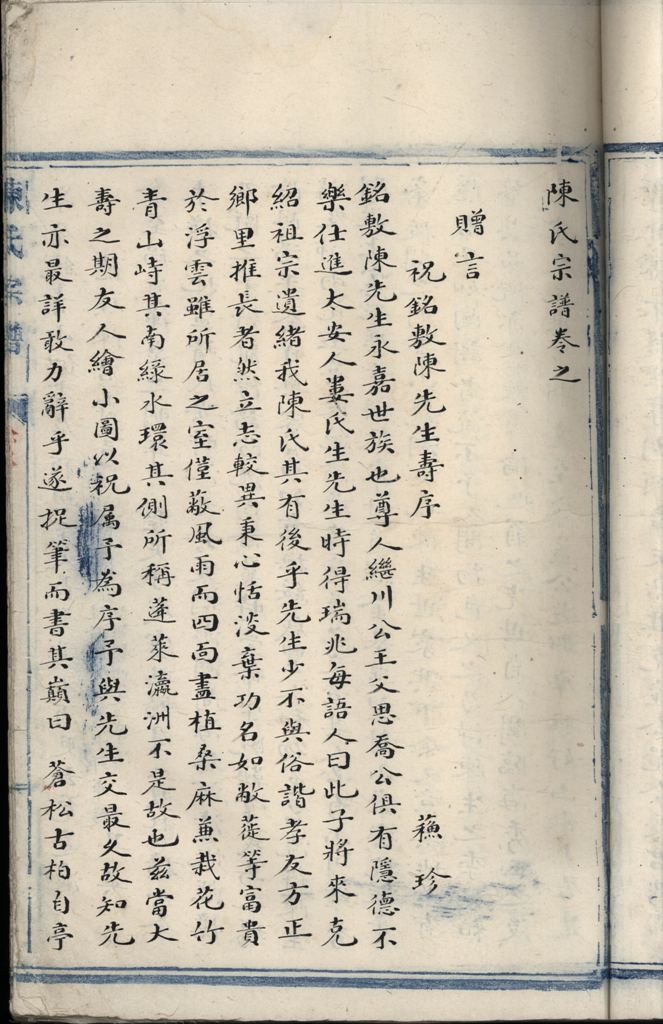 陳氏宗譜卷之
贈言
祝銘敷陳先生壽序
蘓珍
銘敷陳先生永嘉世族也尊人繼川公王父思喬公俱有隱德不
樂仕進太安人婁氏生先生時得瑞兆每語人曰此子將來克
紹祖宗遺緒我陳氏其有後乎先生少不與俗諧孝友方正
鄉里推長者然立志較異秉心恬淡棄功名如敝蓰等富貴
於浮雲雖所居之室僅蔽風雨而四面盡植桑麻蒹栽花竹
青山峙其南綠水環其側所稱蓬萊瀛洲不是故也兹當大
壽之期友人繪小圖以祝属予為序予與先生交最久故知先
生亦最詳敢力辭乎遂捉筆而書其巔曰 蒼松古柏自亭
陳氏宗譜